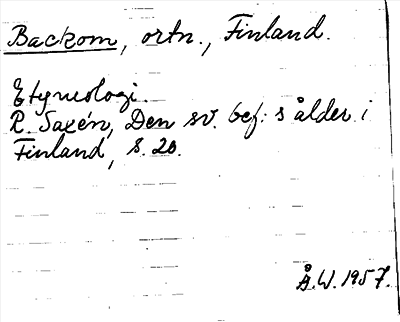 Backom, ortn., Finland.
Etymologi.
R. Saxén, Den sv. bef:s ålder i
Finland, s. 20.
Å.W. 1957.